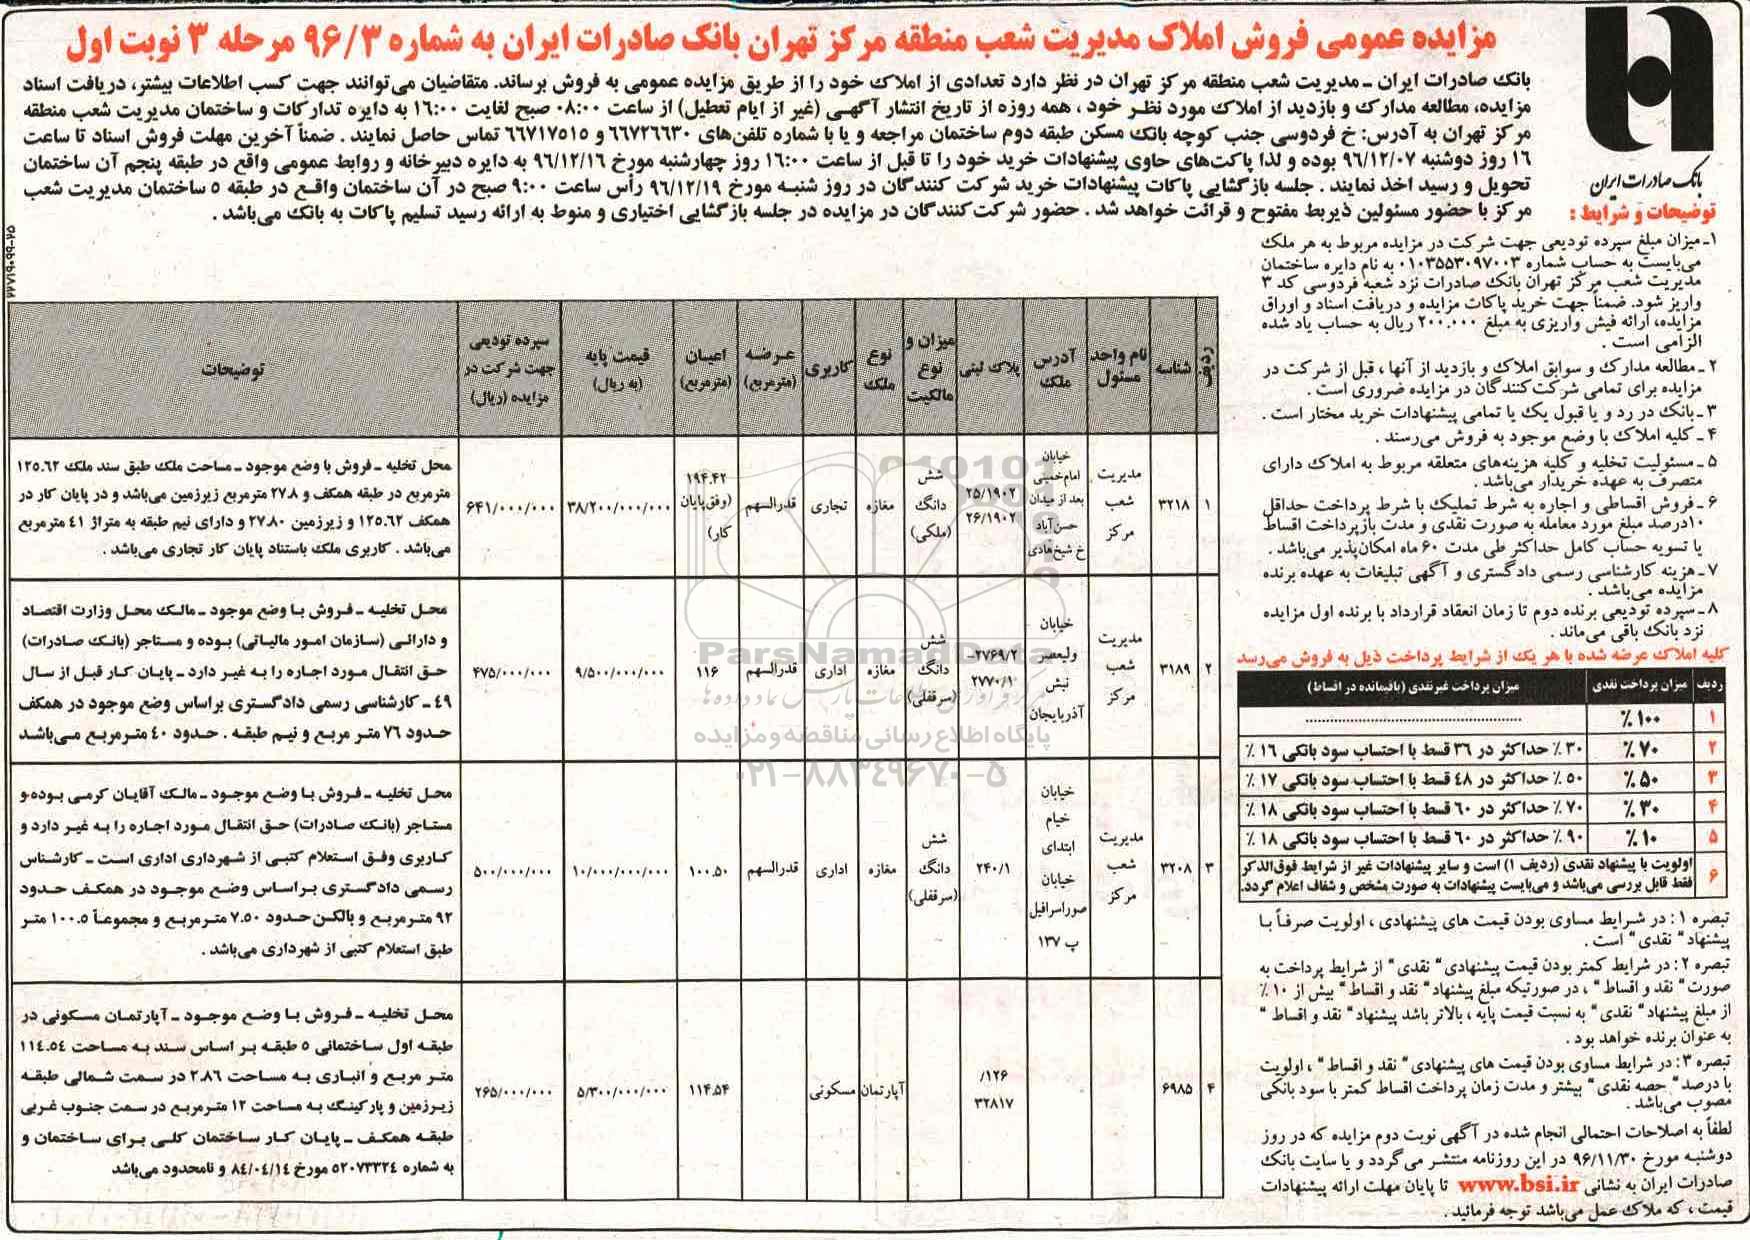 مزایده عمومی فروش املاک مدیریت شعب منطقه مرکز تهران بانک صادرات ایران به شماره ۹۶/۳ مرحله ۳ نوبت اول
بانک صادرات ایران
بانک صادرات ایران ـ مدیریت شعب منطقه مرکز تهران در نظر دارد تعدادی از املاک خود را از طریق مزایده عمومی به فروش برساند. متقاضیان می‌توانند جهت کسب اطلاعات بیشتر، دریافت اسناد
مزایده، مطالعه مدارک و بازدید از املاک مورد نظر خود ، همه روزه از تاریخ انتشار آگهی (غیر از ایام تعطیل) از ساعت ۰۸:۰۰ صبح لغایت ۱۶:۰۰ به دایره تدارکات و ساختمان مدیریت شعب منطقه
مرکز تهران به آدرس: خ فردوسی جنب کوچه بانک مسکن طبقه دوم ساختمان مراجعه و یا با شماره تلفن‌های ۶۶۷۲۶۶۳۰ و ۶۶۷۱۷۵۱۵ تماس حاصل نمایند . ضمناً آخرین مهلت فروش اسناد تا ساعت
۱۶ روز دوشنبه ۹۶/۱۲/۰۷ بوده و لذا پاکت‌های حاوی پیشنهادات خرید خود را تا قبل از ساعت ۱۶:۰۰ روز چهارشنبه مورخ ۹۶/۱۲/۱۶ به دایره دبیرخانه و روابط عمومی واقع در طبقه پنجم آن ساختمان
تحویل و رسید اخذ نمایند . جلسه بازگشایی پاکات پیشنهادات خرید شرکت کنندگان در روز شنبه مورخ ۹۶/۱۲/۱۹ رأس ساعت ۹:۰۰ صبح در آن ساختمان واقع در طبقه ۵ ساختمان مدیریت شعب
مرکز با حضور مسئولین ذیربط مفتوح و قرائت خواهد شد . حضور شرکت‌کنندگان در مزایده در جلسه بازگشایی اختیاری و منوط به ارائه رسید تسلیم پاکات به بانک می‌باشد .
توضیحات و شرایط :
۱ـ میزان مبلغ سپرده تودیعی جهت شرکت در مزایده مربوط به هر ملک
می‌بایست به حساب شماره ۰۱۰۳۵۵۳۰۹۷۰۰۳ به نام دایره ساختمان
مدیریت شعب مرکز تهران بانک صادرات نزد شعبه فردوسی کد ۳
واریز شود. ضمناً جهت خرید پاکات مزایده و دریافت اسناد و اوراق
مزایده، ارائه فیش واریزی به مبلغ ۲۰۰.۰۰۰ ریال به حساب یاد شده
الزامی است .
۲ ـ مطالعه مدارک و سوابق املاک و بازدید از آنها ، قبل از شرکت در
مزایده برای تمامی شرکت‌کنندگان در مزایده ضروری است .
۳ ـ بانک در رد و یا قبول یک یا تمامی پیشنهادات خرید مختار است .
۴ ـ کلیه املاک با وضع موجود به فروش می‌رسند .
۵ ـ مسئولیت تخلیه و کلیه هزینه‌های متعلقه مربوط به املاک دارای
متصرف به عهده خریدار می‌باشد .
۶ ـ فروش اقساطی و اجاره به شرط تملیک با شرط پرداخت حداقل
۱۰درصد مبلغ مورد معامله به صورت نقدی و مدت بازپرداخت اقساط
یا تسویه حساب کامل حداکثر طی مدت ۶۰ ماه امکان‌پذیر می‌باشد .
۷ ـ هزینه کارشناسی رسمی دادگستری و آگهی تبلیغات به عهده برنده
مزایده می‌باشد .
۸ ـ سپرده تودیعی برنده دوم تا زمان انعقاد قرارداد با برنده اول مزایده
نزد بانک باقی می‌ماند .
کلیه املاک عرضه شده با هر یک از شرایط پرداخت ذیل به فروش می‌رسد
ردیف میزان پرداخت نقدی میزان پرداخت غیرنقدی (باقیمانده در اقساط)
۱ ۱۰۰٪ ..........
۲ ۷۰٪ ۳۰٪ حداکثر در ۳۶ قسط با احتساب سود بانکی ۱۶٪
۳ ۵۰٪ ۵۰٪ حداکثر در ۴۸ قسط با احتساب سود بانکی ۱۷٪
۴ ۳۰٪ ۷۰٪ حداکثر در ۶۰ قسط با احتساب سود بانکی ۱۸٪
۵ ۱۰٪ ۹۰٪ حداکثر در ۶۰ قسط با احتساب سود بانکی ۱۸٪
۶ اولویت با پیشنهاد نقدی (ردیف ۱) است و سایر پیشنهادات غیر از شرایط فوق‌الذکر
فقط قابل بررسی می‌باشد و می‌بایست پیشنهادات به صورت مشخص و شفاف اعلام گردد.
تبصره ۱ : در شرایط مساوی بودن قیمت های پیشنهادی ، اولویت صرفاً با
پیشنهاد " نقدی " است .
تبصره ۲ : در شرایط کمتر بودن قیمت پیشنهادی " نقدی " از شرایط پرداخت به
صورت " نقد و اقساط " ، در صورتیکه مبلغ پیشنهاد " نقد و اقساط " بیش از ۱۰٪
از مبلغ پیشنهاد " نقدی " به نسبت قیمت پایه ، بالاتر باشد پیشنهاد " نقد و اقساط "
به عنوان برنده خواهد بود .
تبصره ۳ : در شرایط مساوی بودن قیمت های پیشنهادی " نقد و اقساط " ، اولویت
با درصد " حصه نقدی " بیشتر و مدت زمان پرداخت اقساط کمتر با سود بانکی
مصوب می‌باشد .
لطفاً به اصلاحات احتمالی انجام شده در آگهی نوبت دوم مزایده که در روز
دوشنبه مورخ ۹۶/۱۱/۳۰ در این روزنامه منتشر می‌گردد و یا سایت بانک
صادرات ایران به نشانی www.bsi.ir تا پایان مهلت ارائه پیشنهادات
قیمت ، که ملاک عمل می‌باشد توجه فرمائید .
ردیف شناسه نام واحد مسئول آدرس ملک پلاک ثبتی میزان و نوع مالکیت نوع ملک کاربری عرصه (مترمربع) اعیان (مترمربع) قیمت پایه (به ریال) سپرده تودیعی جهت شرکت در مزایده (ریال) توضیحات
۱ ۳۲۱۸ مدیریت شعب مرکز خیابان امام‌خمینی بعد از میدان حسن‌آباد خ شیخ‌هادی ۲۵/۱۹۰۲ ۲۶/۱۹۰۲ شش دانگ (ملکی) مغازه تجاری قدرالسهم ۱۹۴.۴۲ (وفق پایان کار) ۳۸/۲۰۰/۰۰۰/۰۰۰ ۶۴۱/۰۰۰/۰۰۰
محل تخلیه ـ فروش با وضع موجود ـ مساحت ملک طبق سند ملک ۱۲۵.۶۲
مترمربع در طبقه همکف و ۲۷.۸ مترمربع زیرزمین می‌باشد و در پایان کار در
همکف ۱۲۵.۶۲ و زیرزمین ۲۷.۸۰ و دارای نیم طبقه به متراژ ۴۱ مترمربع
می‌باشد . کاربری ملک باستناد پایان کار تجاری می‌باشد .
۲ ۳۱۸۹ مدیریت شعب مرکز خیابان ولیعصر نبش آذربایجان ۲۷۶۹/۲- ۲۷۷۰/۱ شش دانگ (سرقفلی) مغازه اداری قدرالسهم ۱۱۶ ۹/۵۰۰/۰۰۰/۰۰۰ ۴۷۵/۰۰۰/۰۰۰
محل تخلیه ـ فروش با وضع موجود ـ مالک محل وزارت اقتصاد
و دارائی (سازمان امور مالیاتی) بوده و مستاجر (بانک صادرات)
حق انتقال مورد اجاره را به غیر دارد ـ پایان کار قبل از سال
۴۹ ـ کارشناسی رسمی دادگستری براساس وضع موجود در همکف
حدود ۷۶ متر مربع و نیم طبقه . حدود ۴۰ مترمربع می‌باشد
۳ ۳۲۰۸ مدیریت شعب مرکز خیابان خیام ابتدای خیابان صوراسرافیل پ ۱۳۷ ۲۴۰/۱ شش دانگ (سرقفلی) مغازه اداری قدرالسهم ۱۰۰.۵۰ ۱۰/۰۰۰/۰۰۰/۰۰۰ ۵۰۰/۰۰۰/۰۰۰
محل تخلیه ـ فروش با وضع موجود ـ مالک آقایان کرمی بوده و
مستاجر (بانک صادرات) حق انتقال مورد اجاره را به غیر دارد و
کاربری وفق استعلام کتبی از شهرداری اداری است ـ کارشناس
رسمی دادگستری براساس وضع موجود در همکف حدود
۹۲ مترمربع و بالکن حدود ۷.۵۰ مترمربع و مجموعاً ۱۰۰.۵ متر
طبق استعلام کتبی از شهرداری می‌باشد .
۴ ۶۹۸۵ ۱۲۶/ ۳۲۸۱۷ آپارتمان مسکونی ۱۱۴.۵۴ ۵/۳۰۰/۰۰۰/۰۰۰ ۲۶۵/۰۰۰/۰۰۰
محل تخلیه ـ فروش با وضع موجود ـ آپارتمان مسکونی در
طبقه اول ساختمانی ۵ طبقه بر اساس سند به مساحت ۱۱۴.۵۴
متر مربع و انباری به مساحت ۲.۸۶ در سمت شمالی طبقه
زیرزمین و پارکینگ به مساحت ۱۲ مترمربع در سمت جنوب غربی
طبقه همکف ـ پایان کار ساختمان کلی برای ساختمان و
به شماره ۵۲۰۷۳۳۲۴ مورخ ۸۴/۰۴/۱۴ و نامحدود می‌باشد
ParsNamadData
پایگاه اطلاع رسانی مناقصه و مزایده
۰۲۱-۸۸۳۴۹۶۷۰-۵